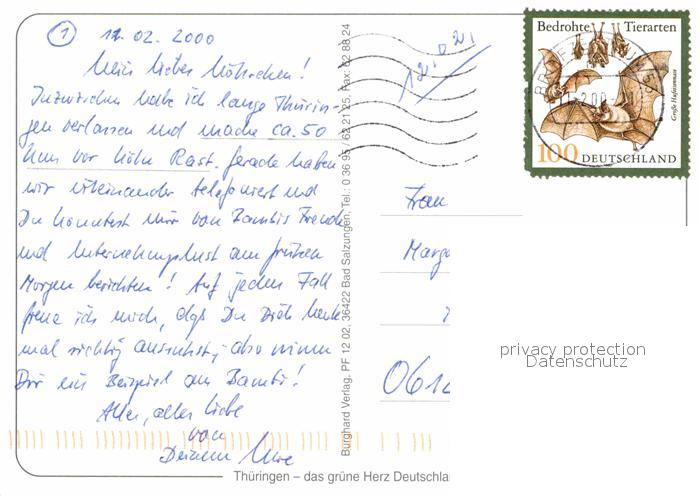 ① 11.02.2000
Mein lieber
Inzwischen habe ich lange Thürin-
gen verlassen und mache ca. 50
km vor Rast. Gerade haben
wir miteinander telefoniert und
Du konntest mir von Bambis Freude
und Unternehmungslust am frühen
Morgen berichten! Auf jeden Fall
freue ich mich, daß Du Dich heute
mal richtig ausruhst, also nimm
Dir ein Beispiel an Bambi!
Alles, alles Liebe
von
Deinem Uwe
Frau
Marg
061
Bedrohte Tierarten
Große Hufeisennase
100 DEUTSCHLAND
Burghard Verlag, PF 12 02, 36422 Bad Salzungen, Tel.: 0 36 95 / 62 21 25, Fax: 62 88 24
Thüringen – das grüne Herz Deutschla
privacy protection
Datenschutz